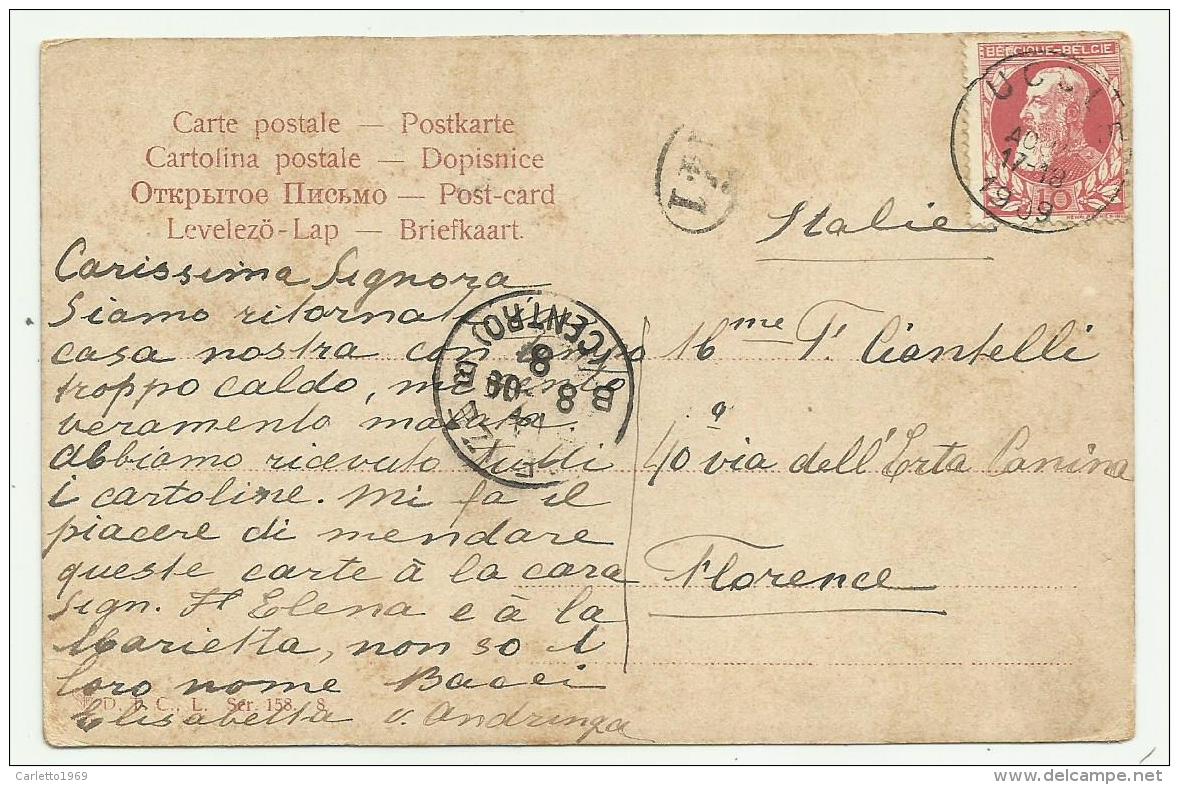 Carte postale — Postkarte
Cartolina postale — Dopisnice
Открытое Письмо — Post-card
Levelező-Lap — Briefkaart.
BELGIQUE-BELGIE
10
UCCLE
17-18
1909
Italie
Carissima Signora
Siamo ritornati
casa nostra con
troppo caldo,
veramento
abbiamo ricevuto tutti
i cartoline. Mi fa il
piacere di mendare
queste carte à la cara
Sign. Elena e à la
Marietta, non so i
loro nome Bacei
Elisabetta v. Andringa
D. F. C., L. Ser. 158. 8
(CENTRO)
8
8
09
Mme T. Ciantelli
40 via dell'Erta Canina
Florence
Carletto1969
delcampe.net